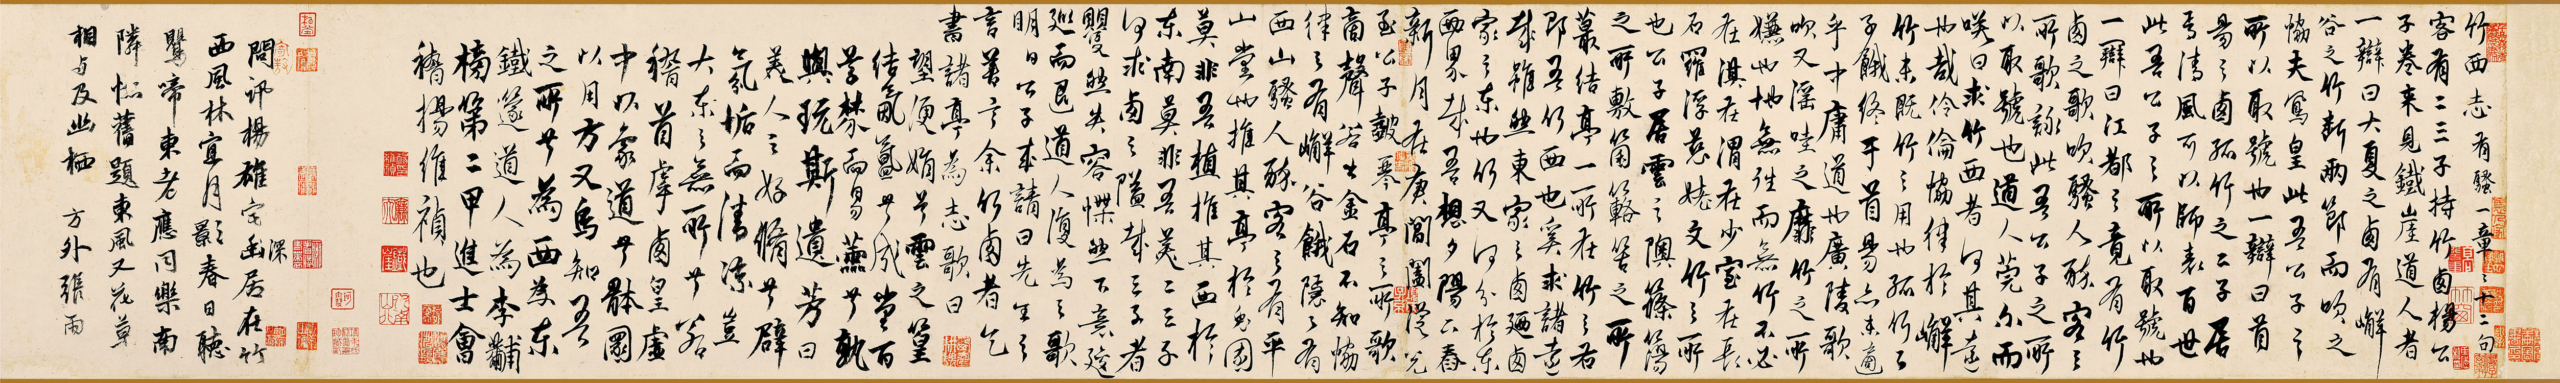 竹西志 有騷一章章十二句
客有二三子持竹西楊公
子卷來見鐵崖道人者
一辯曰大夏之西有嶰
谷之竹斷兩節而吹之
協夫鳳皇此吾公子之
所以取號也一辯曰首
昜之西孤竹之二子居
焉清風可以師表百世
此吾公子之所以取號也
一辯曰江都之竟有竹
西之歌吹騷人醉客之
所歌詠此吾公子之所
以取號也道人莞尒而
咲曰求竹西者何其遠
也哉伶倫協律於嶰
竹未既竹之用也孤竹之
子餓終于首昜亦未適
乎中庸道也廣陵歌
吹又滛哇之靡竹之所
嫌也地無往而無竹不必
在淇在渭在少室在長
石羅浮慈姥文竹之所
也公子居雲之隩篠簜
之所敷箘簵笴之所
叢結亭一所在竹之右
即吾竹西也奚求諸遠
哉雖然東家之西廼西
家之東也竹又何分於東
西界哉吾想夕陽下舂
新月在庚閶闔從兌
至公子鼓琴亭之所歌
商聲若出金石不知協
律之有嶰谷餓隱之有
西山騷人醉客之有平
山堂也推其亭於兎園
莫非吾植推其西於
東南莫非吾美二三子
何求西之隘哉三子者
矍然失容慄然下意逡
巡而退道人復為之歌
明日公子來請曰先生之
言善言余竹西者乞
書諸亭為志歌曰
望便娟兮雲之篁
結氤氳兮成堂
焚而昜燕兮孰
輿玩斯遺芳曰
美人之好脩兮辟
氛垢而清涼豈
大東之無所兮若
稽首虖西皇虛
中以象道兮體圓
以用方又烏知吾
之所兮為西為東
鐵篴道人為李黼
榜第二甲進士會
稽揚維禎也
問訊楊雄宅幽居在竹
深
西風林宜月影春日聽
鸎啼東老應同樂南
隣恨舊題東風又花草
相与及幽栖 方外張雨